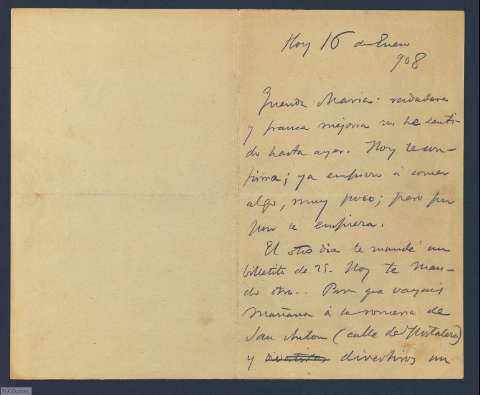 Hoy 16 de Enero
908
Querida María: verdadera
y franca mejoría no he senti-
do hasta ayer. Hoy
; ya empiezo á comer
algo, muy poco; pero por
poco se empieza.
El otro dia te mandé un
billetito de 25. Hoy te man-
do otro. Para que vayais
mañana á la romeria de
San Anton (calle de Hortaleza)
y divertiros un